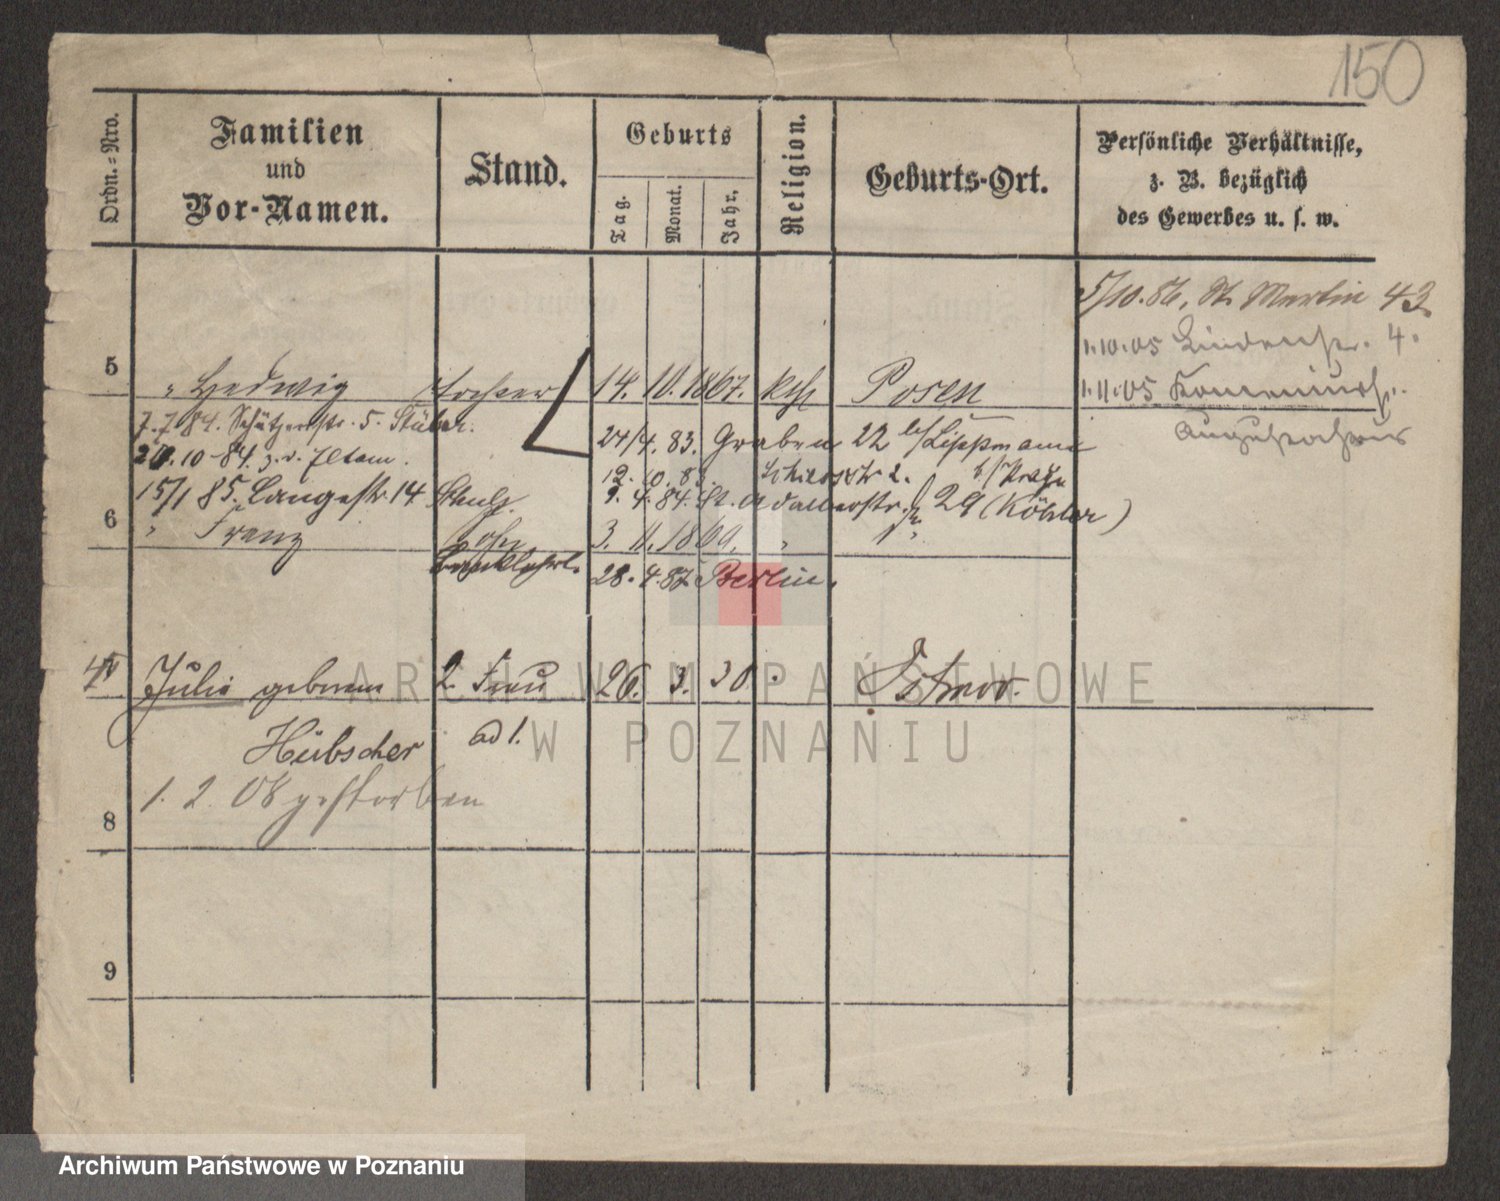 150
Ordn.=Nro.
Familien
und
Vor-Namen.
Stand.
Geburts
Tag.
Monat.
Jahr.
Religion.
Geburts-Ort.
Persönliche Verhältnisse,
z. B. bezüglich
des Gewerbes u. s. w.
5/10. 86, St. Martin 43.
1.10.05 Lindenstr. 4.
1.11.05
5
" Hedwig Tochter 14. 10. 1867. kth Posen
7.7.84. Schützenstr. 5. Stüber.
24/4. 83. Graben 22 b/Lippmann
20.10 84. z. d. Eltern.
12. 10. 83. Schiesstr 2.
15/1 85. Langestr. 14
9. 4. 84. St. Adalbertstr. 29 (Köhler)
6
" Franz Sohn 3. 11. 1869. " "
28. 4. 87. Berlin.
Julie geborene 2. Frau 26. 3. 30. Ostrow.
Hübscher ad 1.
1. 2. 08 gestorben
8
9
ARCHIWUM PAŃSTWOWE
W POZNANIU
Archiwum Państwowe w Poznaniu